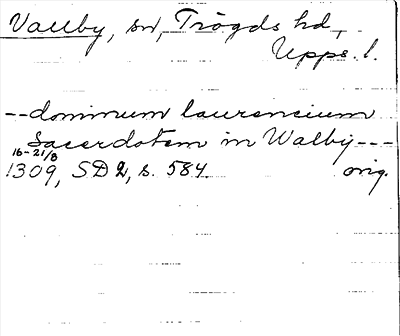 Vallby, sn, Trögds hd,
Upps. l.
--dominum laurencium
Sacerdotem in Walby---
16-21/8
1309, SD 2, s. 584. orig.